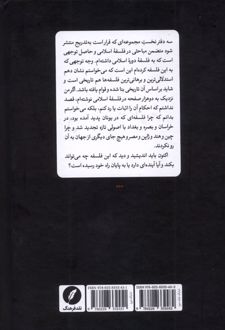 سه دفتر نخست مجموعه‌ای که قرار است به‌تدریج منتشر
شود متضمن مباحثی در فلسفهٔ اسلامی و حاصل توجهی
است که به فلسفهٔ دورهٔ اسلامی داشته‌ام. وجه توجهی که
به این فلسفه کرده‌ام این است که می‌خواستم نشان دهم
استدلالی‌ترین و برهانی‌ترین فلسفه‌ها هم تاریخی است و
شاید بر اساس آن تاریخی بنا شده و قوام یافته باشد. اگر من
نزدیک به دو هزار صفحه در فلسفهٔ اسلامی نوشته‌ام، قصد
نداشتم که احکام آن را اثبات یا رد کنم، بلکه می‌خواستم
بدانم که چرا فلسفه‌ای که در یونان پدید آمده بود، در
خراسان و بصره و بغداد با اصولی تازه تجدید شد و چرا
چین و هند و ژاپن و مصر و هیچ جای دیگری از جهان به آن
رو نکردند.
اکنون باید اندیشید و دید که این فلسفه چه می‌تواند
بکند و آیا آینده‌ای دارد یا به پایان راه خود رسیده است؟
نقد فرهنگ